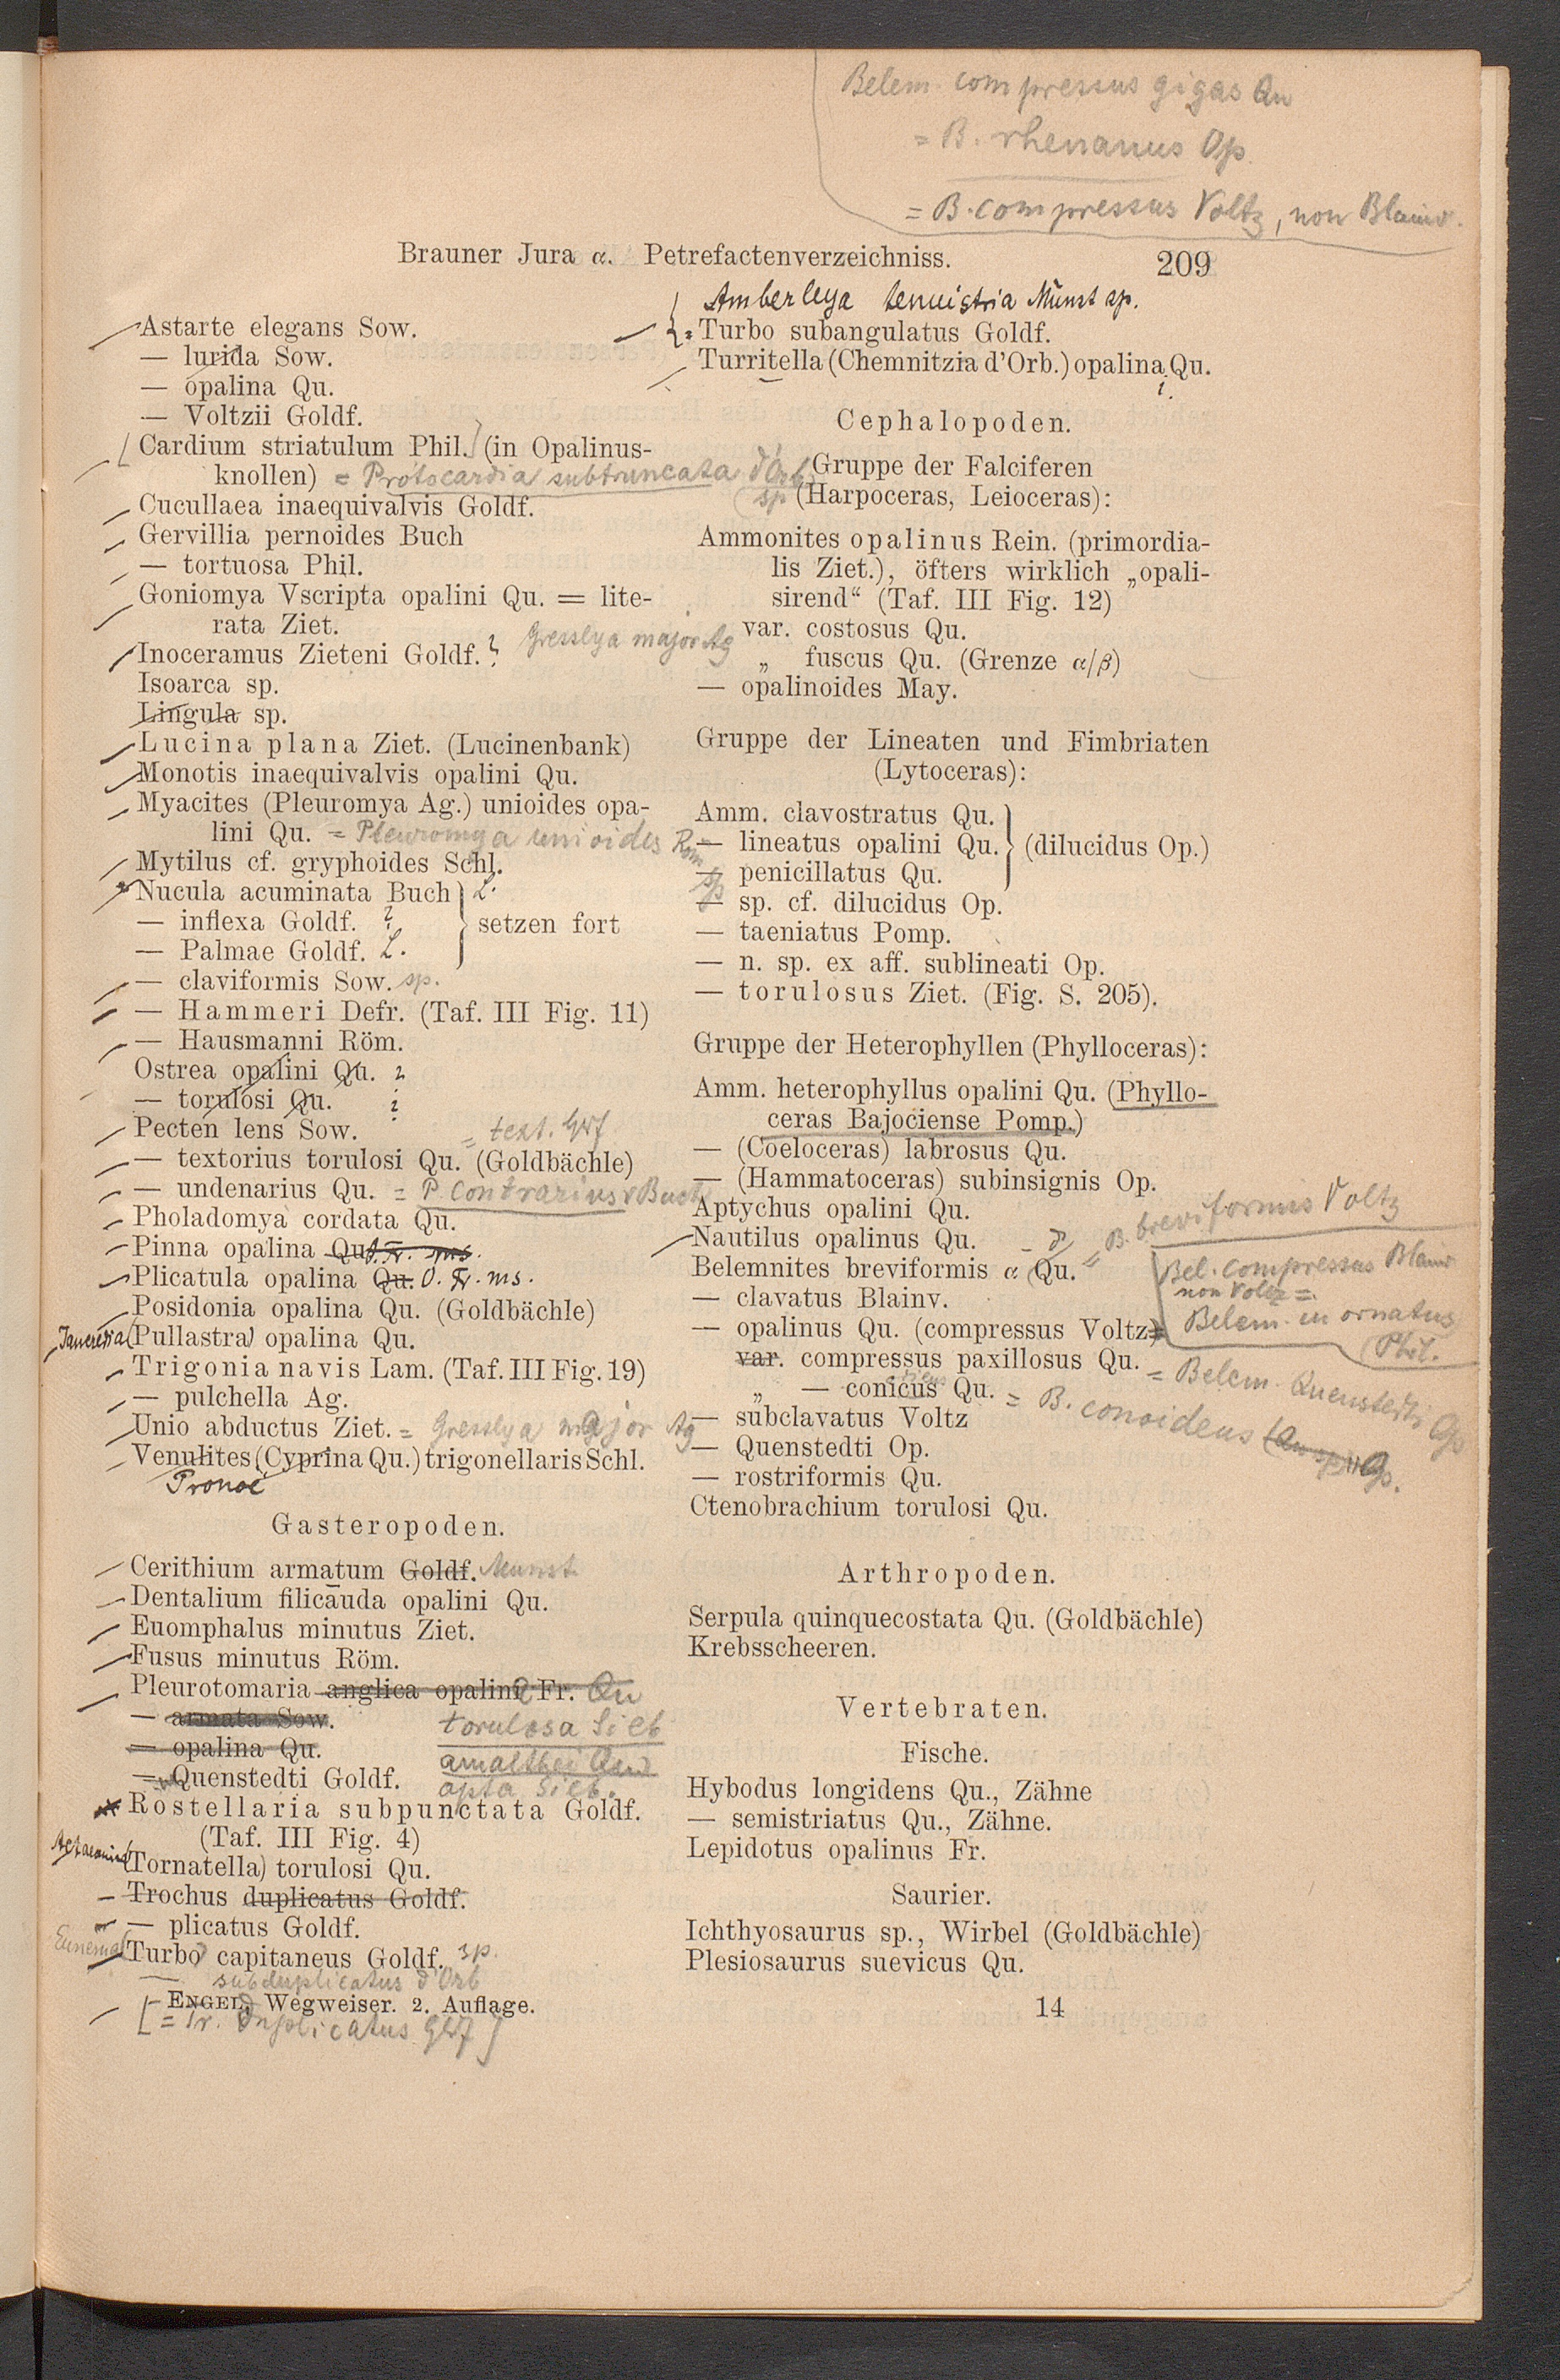 Belem. compressus gigas Qu
= B. rhenanus Op.
= B. compressus Voltz, non Blainv.
Brauner Jura α. Petrefactenverzeichniss. 209
Astarte elegans Sow.
— lurida Sow.
— opalina Qu.
— Voltzii Goldf.
[Cardium striatulum Phil.] (in Opalinus-
knollen) = Protocardia subtruncata d'Orb.
sp
Cucullaea inaequivalvis Goldf.
Gervillia pernoides Buch
— tortuosa Phil.
Goniomya Vscripta opalini Qu. = lite-
rata Ziet.
Gresslya major Ag
Inoceramus Zieteni Goldf. ?
Isoarca sp.
Lingula sp.
Lucina plana Ziet. (Lucinenbank)
Monotis inaequivalvis opalini Qu.
Myacites (Pleuromya Ag.) unioides opa-
lini Qu. = Pleuromya unioides Röm
sp
Mytilus cf. gryphoides Schl.
Nucula acuminata Buch L.
— inflexa Goldf. ? } setzen fort
— Palmae Goldf. L.
— claviformis Sow. sp.
— Hammeri Defr. (Taf. III Fig. 11)
— Hausmanni Röm.
Ostrea opalini Qu. ?
— torulosi Qu. ?
Pecten lens Sow.
= text. Gdf
— textorius torulosi Qu. (Goldbächle)
— undenarius Qu. = P. contrarius v Buch
Pholadomya cordata Qu.
Pinna opalina Qu. O. Fr. ms.
Plicatula opalina Qu. O. Fr. ms.
Posidonia opalina Qu. (Goldbächle)
Tancredia (Pullastra) opalina Qu.
Trigonia navis Lam. (Taf. III Fig. 19)
— pulchella Ag.
Unio abductus Ziet. = Gresslya major Ag
Venulites (Cyprina Qu.) trigonellaris Schl.
Pronoe
Gasteropoden.
Cerithium armatum Goldf. Munst.
Dentalium filicauda opalini Qu.
Euomphalus minutus Ziet.
Fusus minutus Röm.
Pleurotomaria anglica opalini Fr. Qu
— armata Sow. torulosa Sieb
— opalina Qu. amalthei Qu
— Quenstedti Goldf. apta Sieb.
Rostellaria subpunctata Goldf.
(Taf. III Fig. 4)
Actaeonina (Tornatella) torulosi Qu.
Trochus duplicatus Goldf.
— plicatus Goldf.
Eunema (Turbo) capitaneus Goldf. sp.
— subduplicatus d'Orb
ENGEL, Wegweiser. 2. Auflage.
[= Tr. duplicatus Gdf]
Amberleya tenuistria Münst sp.
= Turbo subangulatus Goldf.
Turritella (Chemnitzia d'Orb.) opalina Qu.
Cephalopoden.
Gruppe der Falciferen
(Harpoceras, Leioceras):
Ammonites opalinus Rein. (primordia-
lis Ziet.), öfters wirklich „opali-
sirend“ (Taf. III Fig. 12)
var. costosus Qu.
„ fuscus Qu. (Grenze α/β)
— opalinoides May.
Gruppe der Lineaten und Fimbriaten
(Lytoceras):
Amm. clavostratus Qu.
— lineatus opalini Qu. } (dilucidus Op.)
— penicillatus Qu.
— sp. cf. dilucidus Op.
— taeniatus Pomp.
— n. sp. ex aff. sublineati Op.
— torulosus Ziet. (Fig. S. 205).
Gruppe der Heterophyllen (Phylloceras):
Amm. heterophyllus opalini Qu. (Phyllo-
ceras Bajociense Pomp.)
— (Coeloceras) labrosus Qu.
— (Hammatoceras) subinsignis Op.
Aptychus opalini Qu.
Nautilus opalinus Qu.
Belemnites breviformis α Qu. = B. breviformis Voltz
— clavatus Blainv.
— opalinus Qu. (compressus Voltz)
Bel. compressus Blainv
non Voltz =
Belem. inornatus
Phil.
var. compressus paxillosus Qu. = Belem. Quenstedti Op
„ — conicus Qu. = B. conoideus Op.
— subclavatus Voltz
— Quenstedti Op.
— rostriformis Qu.
Ctenobrachium torulosi Qu.
Arthropoden.
Serpula quinquecostata Qu. (Goldbächle)
Krebsscheeren.
Vertebraten.
Fische.
Hybodus longidens Qu., Zähne
— semistriatus Qu., Zähne.
Lepidotus opalinus Fr.
Saurier.
Ichthyosaurus sp., Wirbel (Goldbächle)
Plesiosaurus suevicus Qu.
14